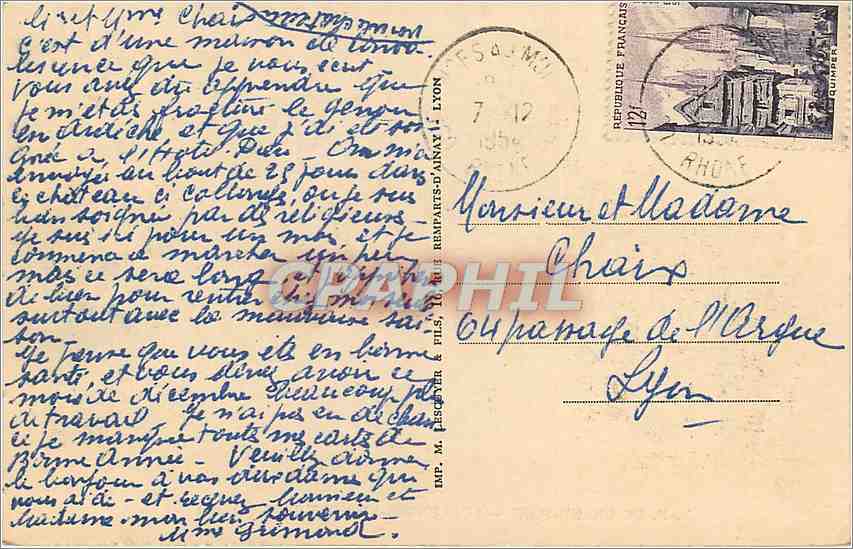 C'est d'une maison de
que je vous ecris
vous avez dû apprendre que
je m'étais fracturé le genou
en ardèche et que j'ai été soi
gnée à l'Hotel Dieu - On m'a
envoyée au bout de 25 jours dans
ce château ci Collonges, ou je suis
bien soignée par des religieuses -
Je suis ici pour un mois, et je
commence a marcher un peu
mais ce sera long
de bien pour rentrer chez moi
surtout avec la mauvaise sai-
son
Je pense que vous êtes en bonne
santé, et vous devez avoir ce
mois de décembre beaucoup plus
de travail Je n'ai pas eu de chan
ce je manque toutes mes cartes de
Bonne Année - Veuillez donner
le bonjour à vos dames qui
vous aide - et recevez Monsieur et
Madame mon bon souvenir -
Mme Grimond.
IMP. M. LESCUYER & FILS, 16, RUE REMPARTS-D'AINAY - LYON
7 - 12
1954
RHONE
RÉPUBLIQUE FRANÇAISE
12F
QUIMPER
RHONE
Monsieur et Madame
Chaix
64 passage de l'Argue
Lyon
CPAPHIL